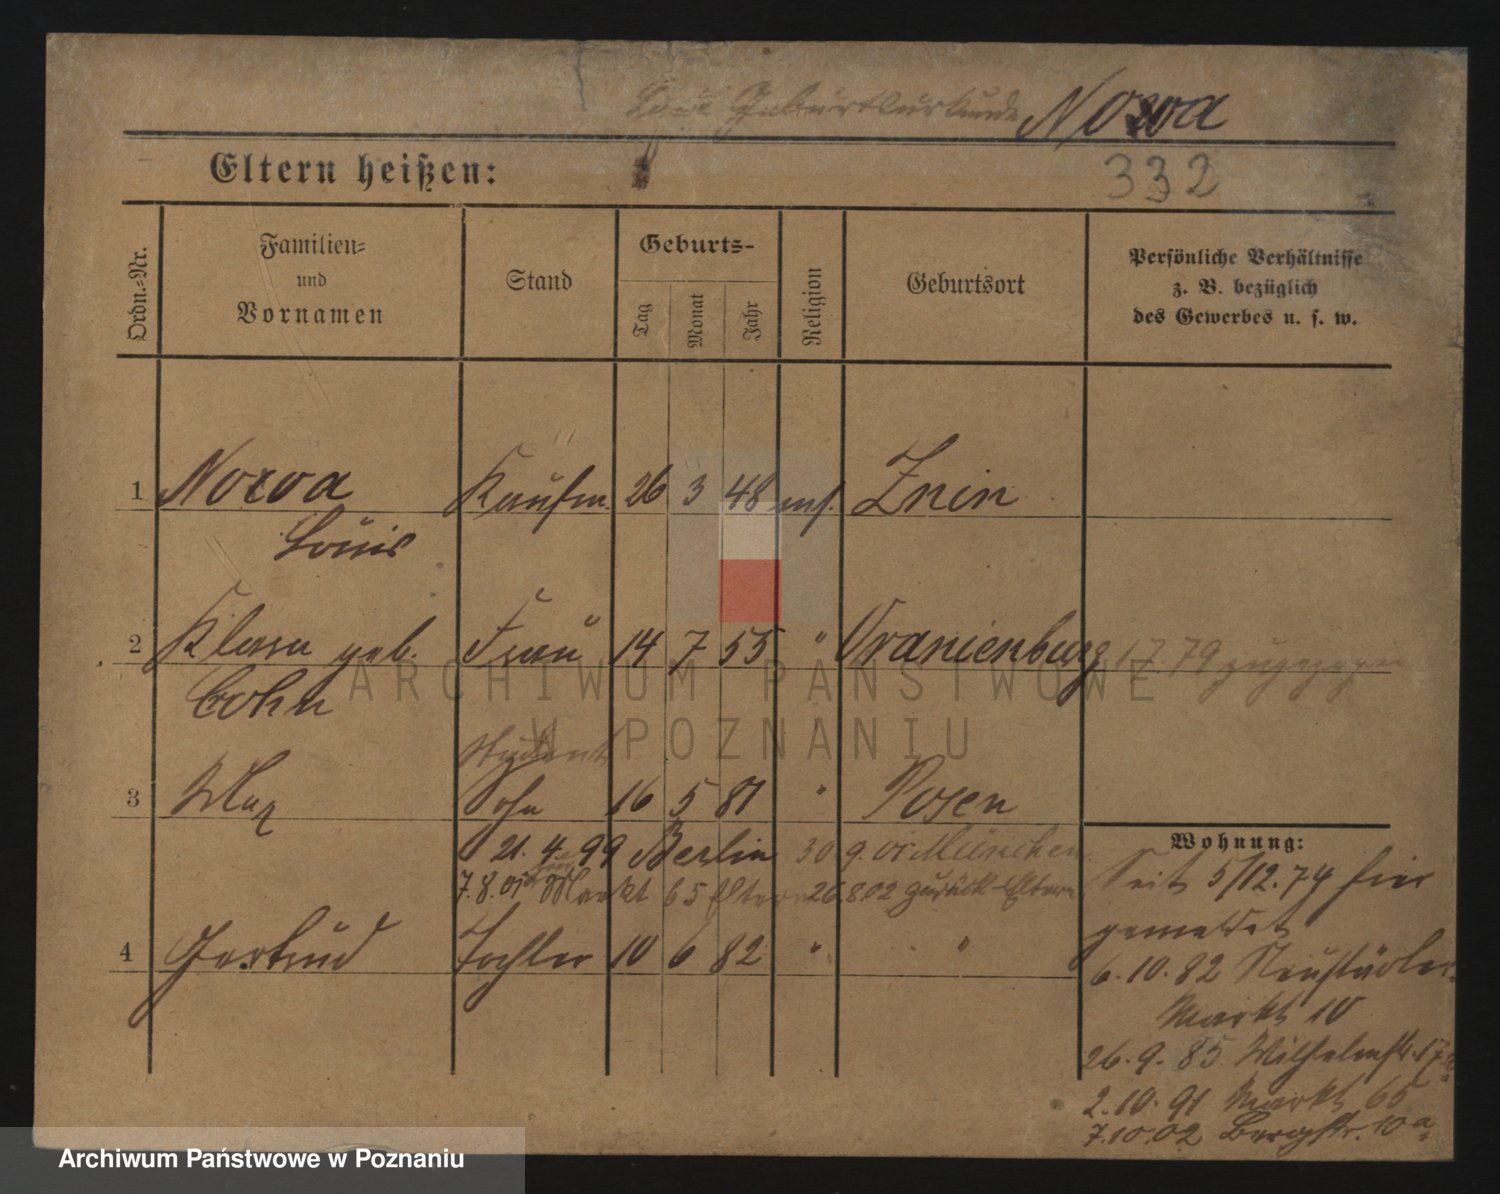 laut Geburtsurkunde Norva
Eltern heißen:
332
Ordn.-Nr.
Familien-
und
Vornamen
Stand
Geburts-
Tag
Monat
Jahr
Religion
Geburtsort
Persönliche Verhältnisse
z. B. bezüglich
des Gewerbes u. s. w.
1 Norva Kaufm. 26 3 48 mos. Znin
Louis
2 Klara geb. Frau 14 7 55 " Oranienburg 1.7.79 zugezogen
Cohn
Student
3 Max Sohn 16 5 81 " Posen
21. 4. 99 Berlin 30 9. 01 München
7.8.01 Markt 65 Eltern 26.8.02 zurück Eltern
4 Gertrud Tochter 10 6 82 " "
Wohnung:
Seit 5/12.79 hier
gemeldet
6.10.82 Neustädter
Markt 10
26.9.85 Wilhelmstr. 17
2.10.91 Markt 65
7.10.02 Bergstr. 10a
ARCHIWUM PAŃSTWOWE
W POZNANIU
Archiwum Państwowe w Poznaniu